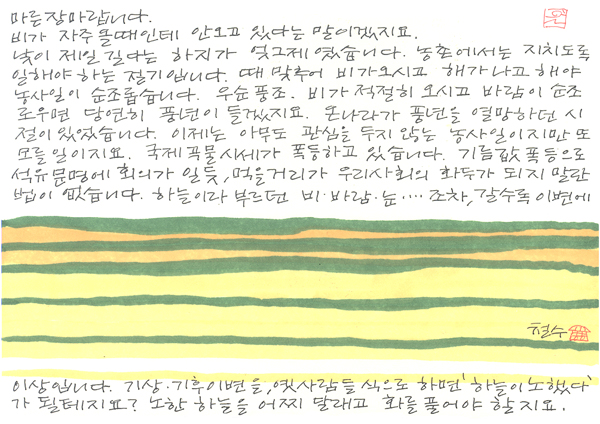 마른장마랍니다.
비가 자주 올때인데 안오고 있다는 말이겠지요.
낮이 제일 길다는 하지가 엊그제였습니다. 농촌에서는 지치도록
일해야 하는 절기입니다. 때 맞추어 비가오시고 해가나고 해야
농사일이 순조롭습니다. 우순풍조. 비가 적절히 오시고 바람이 순조
로우면 당연히 풍년이 들겠지요. 온나라가 풍년을 열망하던 시
절이 있었습니다. 이제는 아무도 관심을 두지 않는 농사일이지만 또
모를 일이지요. 국제곡물시세가 폭등하고 있습니다. 기름값 폭등으로
석유문명에 회의가 일듯, 먹을거리가 우리사회의 화두가 되지 말란
법이 없습니다. 하늘이라 부르던 비·바람·눈···· 조차, 갈수록 이변에
철수
이상입니다. 기상·기후이변을, 옛사람들 식으로 하면 '하늘이 노했다'
가 될테지요? 노한 하늘을 어찌 달래고 화를 풀어야 할지요.